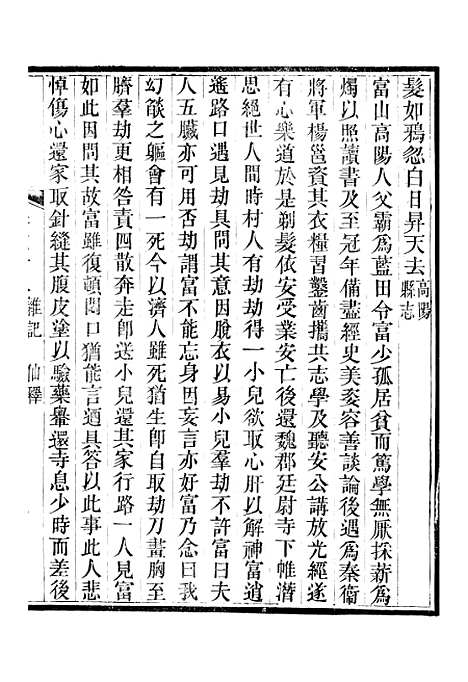 髮如鴉忽白日昇天去高陽縣志
富山高陽人父霸爲藍田令富少孤居貧而篤學無厭採薪爲
燭以照讀書及至冠年備盡經史美姿容善談論後遇爲秦衞
將軍楊邕資其衣糧習鑿齒攜共志學及聽安公講放光經遂
有心樂道於是剃髮依安受業安亡後還魏郡廷尉寺下帷潛
思絕世人閒時村人有劫劫得一小兒欲取心肝以解神富逍
遙路口遇見劫具問其意因脫衣以易小兒羣劫不許富曰夫
人五臟亦可用否劫謂富不能忘身因妄言亦好富乃念曰我
幻燄之軀會有一死今以濟人雖死猶生卽自取劫刀畫胸至
臍羣劫更相咎責四散奔走卽送小兒還其家行路一人見富
如此因問其故富雖復頓悶口猶能言迺具答以此事此人悲
悼傷心還家取針縫其腹皮塗以驗藥轝還寺息少時而差後
雜記 仙釋